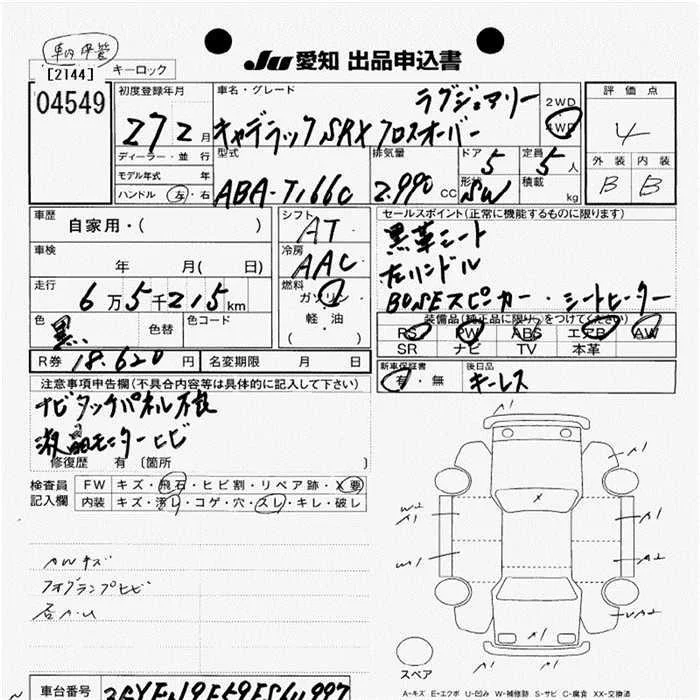 車内保管
[2144] キーロック
JU 愛知 出品申込書
04549
初度登録年月
27 2 月
車名・グレード
ラグジュアリー
キャデラックSRXクロスオーバー
2WD
4WD
評価点
4
ディーラー・並行
モデル年式 年
ハンドル 左・右
型式
ABA-T166C
排気量
2.990 CC
ドア 5
形状 SW
定員 5 人
積載 kg
外装 内装
B B
車歴 自家用・( )
シフト AT
車検 年 月( 日)
冷房 AAC
走行 6万5千215km
燃料 ガソリン・軽・油 ( )
色 黒 色替 色コード
R券 18.620 円 名変期限 月 日
セールスポイント(正常に機能するものに限ります)
黒革シート
左ハンドル
BOSEスピーカー・シートヒーター
装備品(純正品に限り○をつけてください)
RS PW ABS エアB AW
SR ナビ TV 本革
新車保証書 有・無
後日品 キーレス
注意事項申告欄(不具合内容等は具体的に記入して下さい)
ナビタッチパネル不良
液晶モニターヒビ
修復歴 有 〔箇所 〕
検査員記入欄
FW キズ・飛石・ヒビ割・リペア跡・X要
内装 キズ・汚レ・コゲ・穴・スレ・キレ・破レ
AWキズ
フォグランプヒビ
A1
A1
W2
A1
A1
W1
A2
UA2
A1
A1
X
スペア
車台番号
A-キズ E-エクボ U-凹み W-補修跡 S-サビ C-腐食 XX-交換済